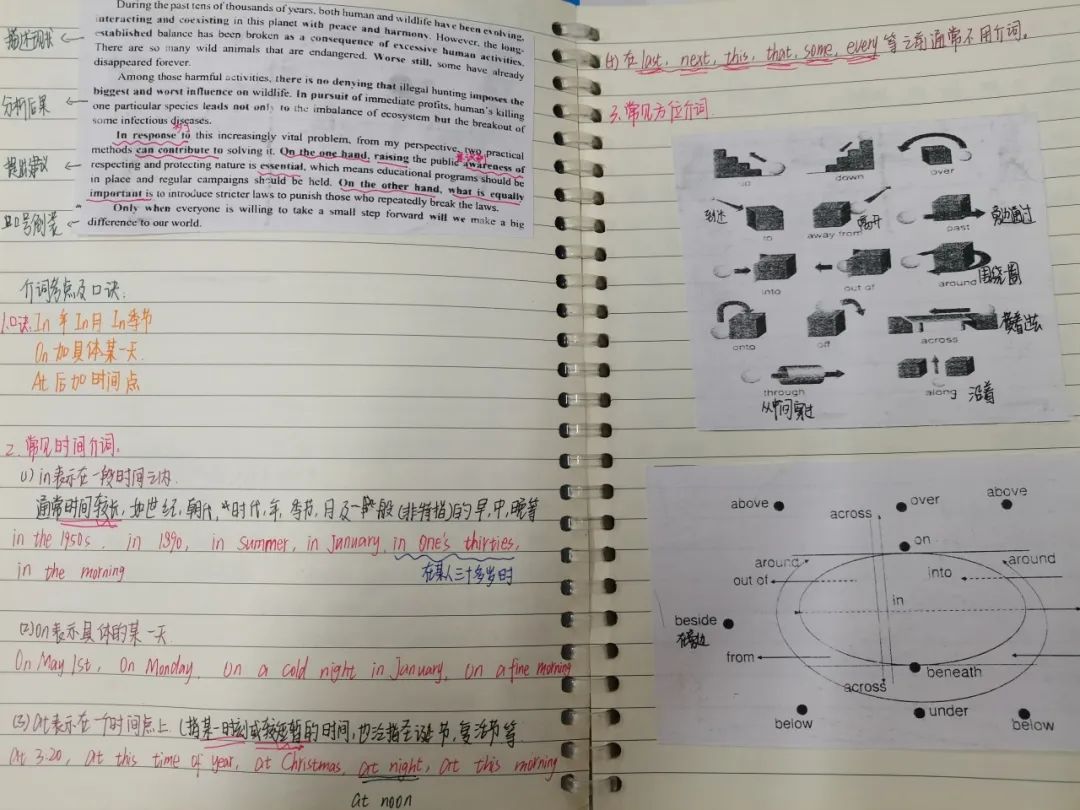 During the past tens of thousands of years, both human and wildlife have been evolving,
interacting and coexisting in this planet with peace and harmony. However, the long-
established balance has been broken as a consequence of excessive human activities.
There are so many wild animals that are endangered. Worse still, some have already
disappeared forever.
Among those harmful activities, there is no denying that illegal hunting imposes the
biggest and worst influence on wildlife. In pursuit of immediate profits, human's killing
one particular species leads not only to the imbalance of ecosystem but the breakout of
some infectious diseases.
In response to this increasingly vital problem, from my perspective, two practical
methods can contribute to solving it. On the one hand, raising the public awareness of
respecting and protecting nature is essential, which means educational programs should be
in place and regular campaigns should be held. On the other hand, what is equally
important is to introduce stricter laws to punish those who repeatedly break the laws.
Only when everyone is willing to take a small step forward will we make a big
difference to our world.
描述现状
分析后果
提出建议
介词考点及口诀:
1.口诀: In 年 In 月 In 季节
On 加具体某一天.
At 后加时间点
2. 常见时间介词.
(1) in表示在一段时间之内.
通常时间较长, 如世纪, 朝代, 时代, 年, 季节, 月及一般(非特指)的早, 中, 晚等
in the 1950s, in 1890, in summer, in January, in one's thirties,
in the morning
在某人三十多岁时
(2) on表示具体的某一天.
On May 1st, On Monday, on a cold night in January, on a fine morning
(3) at表示在一个时间点上. (指某一时刻或较短暂的时间, 也泛指圣诞节, 复活节等
At 3:20, at this time of year, at Christmas, at night, at this morning
at noon
(4) 在 last, next, this, that, some, every 等之前通常不用介词.
3. 常见方位介词
down
over
to
away from
离开
past
into
out of
around
围绕一圈
onto
off
across
横着过去
through
从中间穿过
along
沿着
above
over
above
across
on
around
around
out of
into
in
beside
from
beneath
across
below
under
below